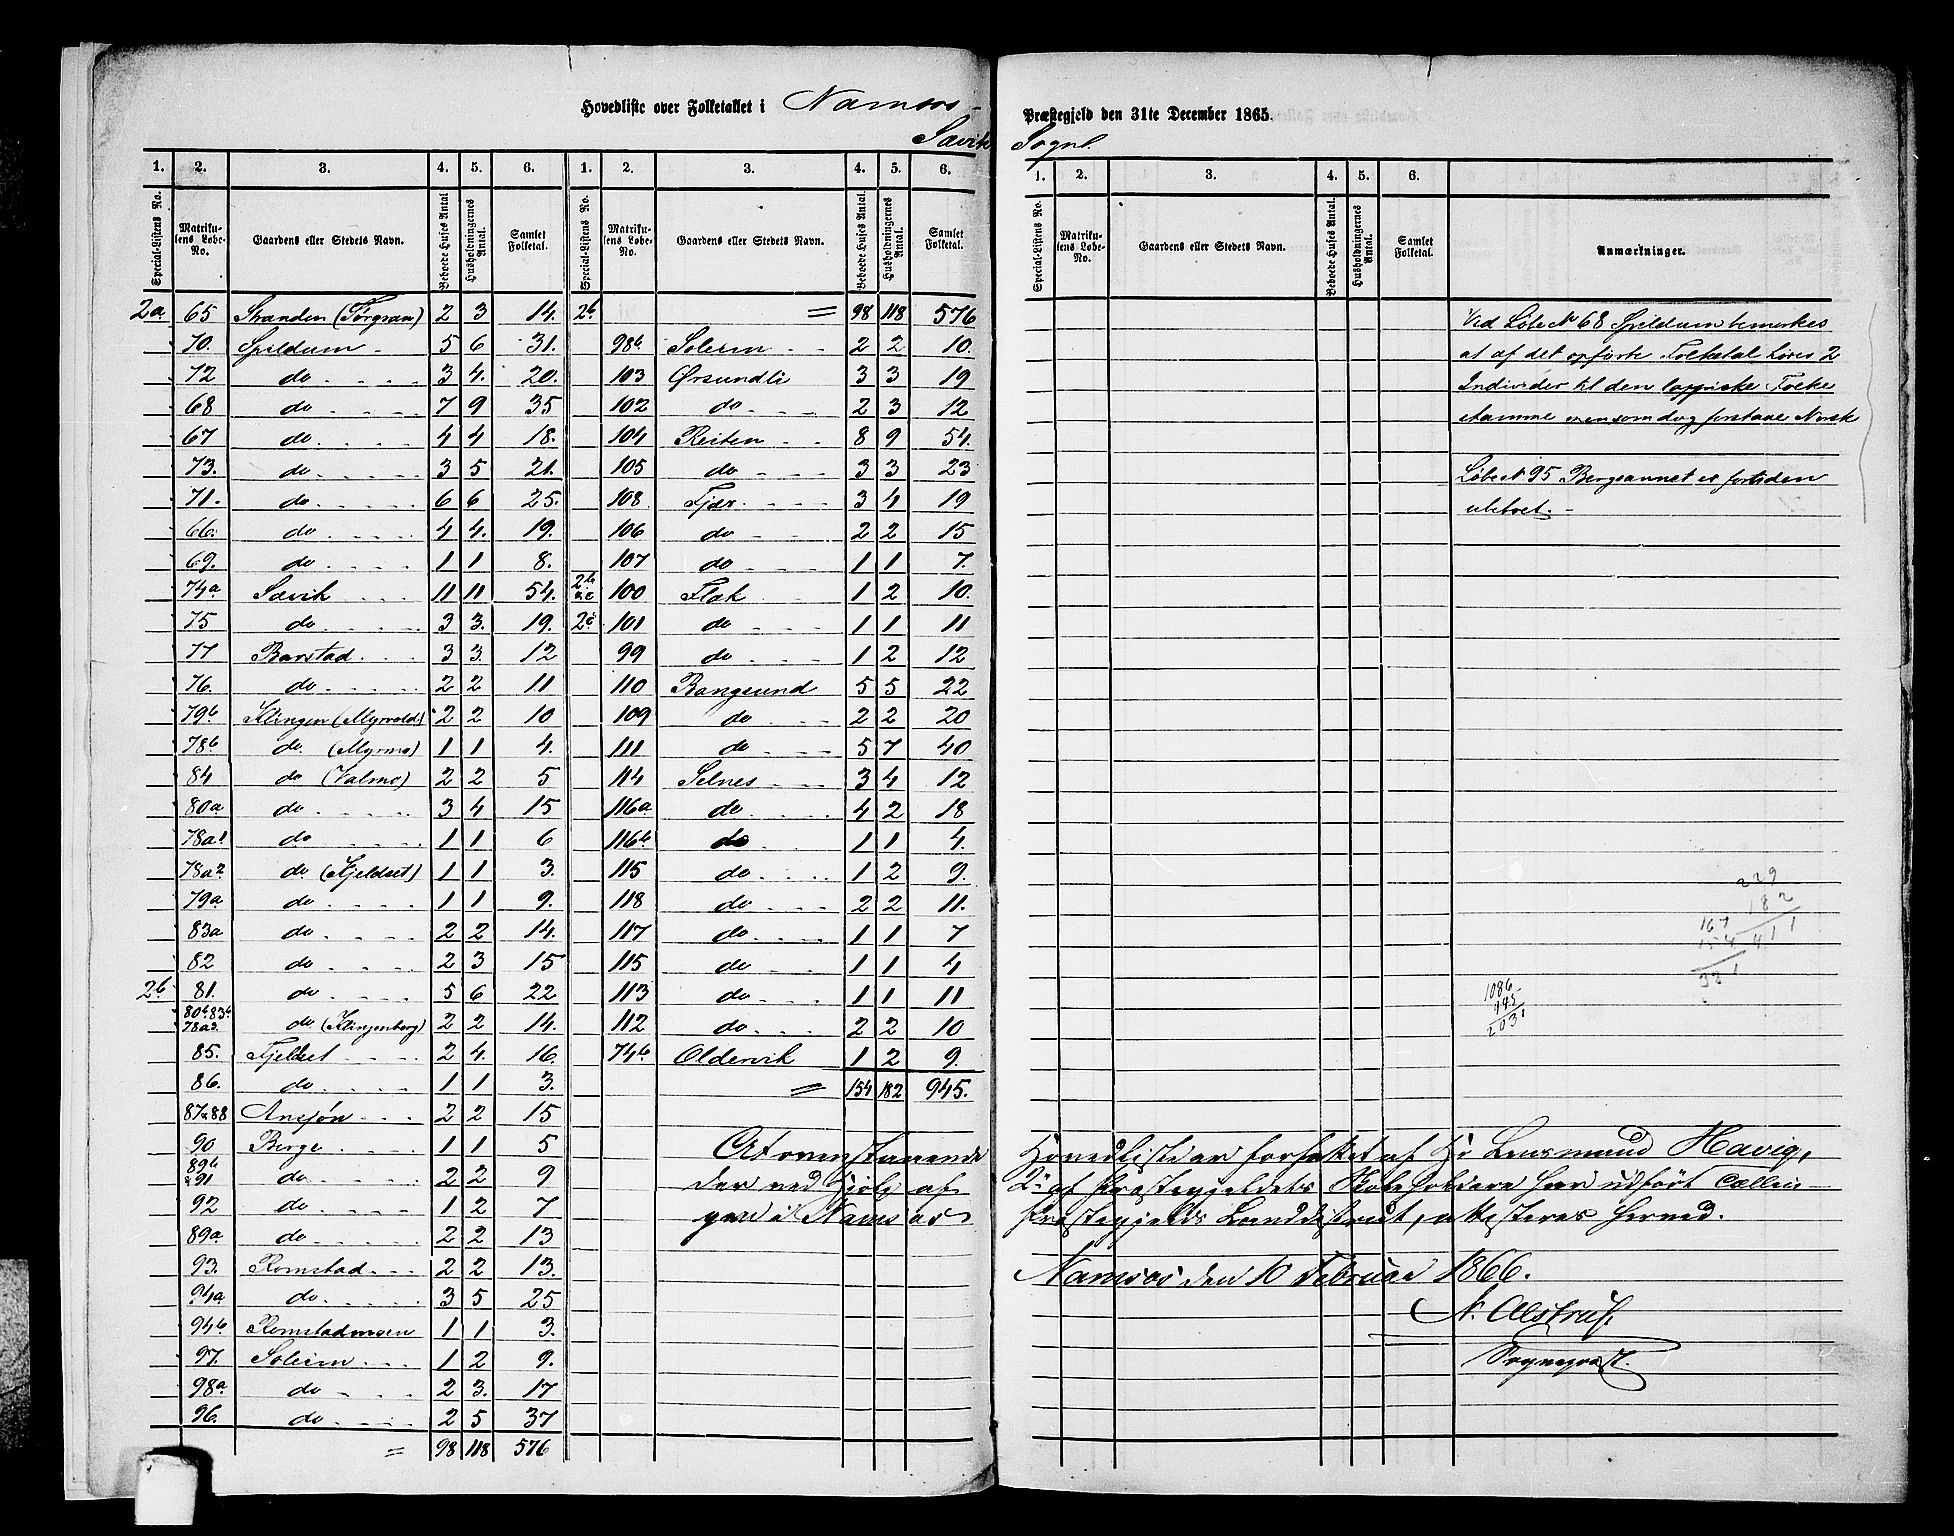 Hovedliste over Folketallet i Namsos - Præstegjeld den 31te December 1865.
Sævik Sogn.
1. 2. 3. 4. 5. 6. 1. 2. 3. 4. 5. 6.
Special-Listens No. Matrikulens Løbe-No. Gaardens eller Stedets Navn. Beboede Huses Antal Husholdningernes Antal. Samlet Folketal. Special-Listens No. Matrikulens Løbe-No. Gaardens eller Stedets Navn. Beboede Huses Antal. Husholdningernes Antal. Samlet Folketal.
2a 65 Stranden (Torgsan) 2 3 14. 2b = 98 118 576
70. Spildum - 5 6 31. 98b Soleim 2 2 10.
72 do 3 4. 20. 103 Ørsundli 3 3 19
68 do 7 9 35 102 do 2 3 12
67 do 4 4 18. 104 Reiten 8 9 54.
73. do 3 5 21. 105 do 3 3 23
71. do 6 6 25. 108 Fjær 3 4 19
66. do 4 4. 19. 106 do 2 2 15
69. do 1 1 8. 107 do 1 1 7.
74a Sævik 11 11 54. 2b & c 100 Flak 1 2 10.
75 do 3 3. 19. 2c 101 do 1 1 11
77 Barstad 3 3. 12 99 do 1 2 12
76. do 2 2 11 110 Bangsund 5 5 22
79b Klingen (Myrvold) 2 2 10 109 do 2 2 20
78b do (Myrmo) 1 1 4. 111 do 5 7 40
84 do (Valmo) 2 2 5 114 Selnes 3 4 12
80a do 3 4 15 116a do 4 2 18
78a1 do 1 1 6 116b do 1 1 4.
78a2 do (Fjeldset) 1 1 3. 115 do 1 2 9.
79a do 1 1 9. 118 do 2 2 11.
83a do 2 2 14. 117 do 1 1 7
82 do 2 3 15 115 do 1 1 4
2b 81. do 5 6 22 113 do 1 1 11
80b 83b 78a3. do (Klingenberg) 2 2 14. 112 do 2 2 10
85. Fjeldset 2 4. 16. 74b Oldervik 1 2 9.
86. do 1 1 3. = 154 182 945.
87 & 88 Ansjøn 2 2 15
90 Berge 1 1 5
89b & 91 do 2 2 9
92 do 1 2 7
89a do 2 2 13
93. Romstad 2 2 13.
94a do 3 5 25
94b Romstadmoen 1 1 3.
97. Soleim 1 2 9.
98a do 2 3. 17
96. do 2 5 37
= 98 118 576
1. 2. 3. 4. 5. 6.
Special-Listens No. Matrikulens Løbe-No. Gaardens eller Stedets Navn. Beboede Huses Antal. Husholdningernes Antal. Samlet Folketal. Anmærkninger.
Ved Løbe No 68 Spildum bemerkes
at af det opførte Folketal høres 2
Individer til den lappiske Folke
stamme som dog forstaae Norsk
Løbe No 95 Bergsaunet er fortiden
ubeboet. -
229
182
411
167
154
331
1086
945
2031
At ovenstaaende Hovedliste er forfattet af Hr Lensmand Havig,
der ved Hjælp af 2 af Præstegjeldets Skoleholdere har udført
i Namsos Præstegjelds Landdistrikt, attesteres herved.
Namsos den 10 Februar 1866.
N. Alstrup.
Sogneprest.